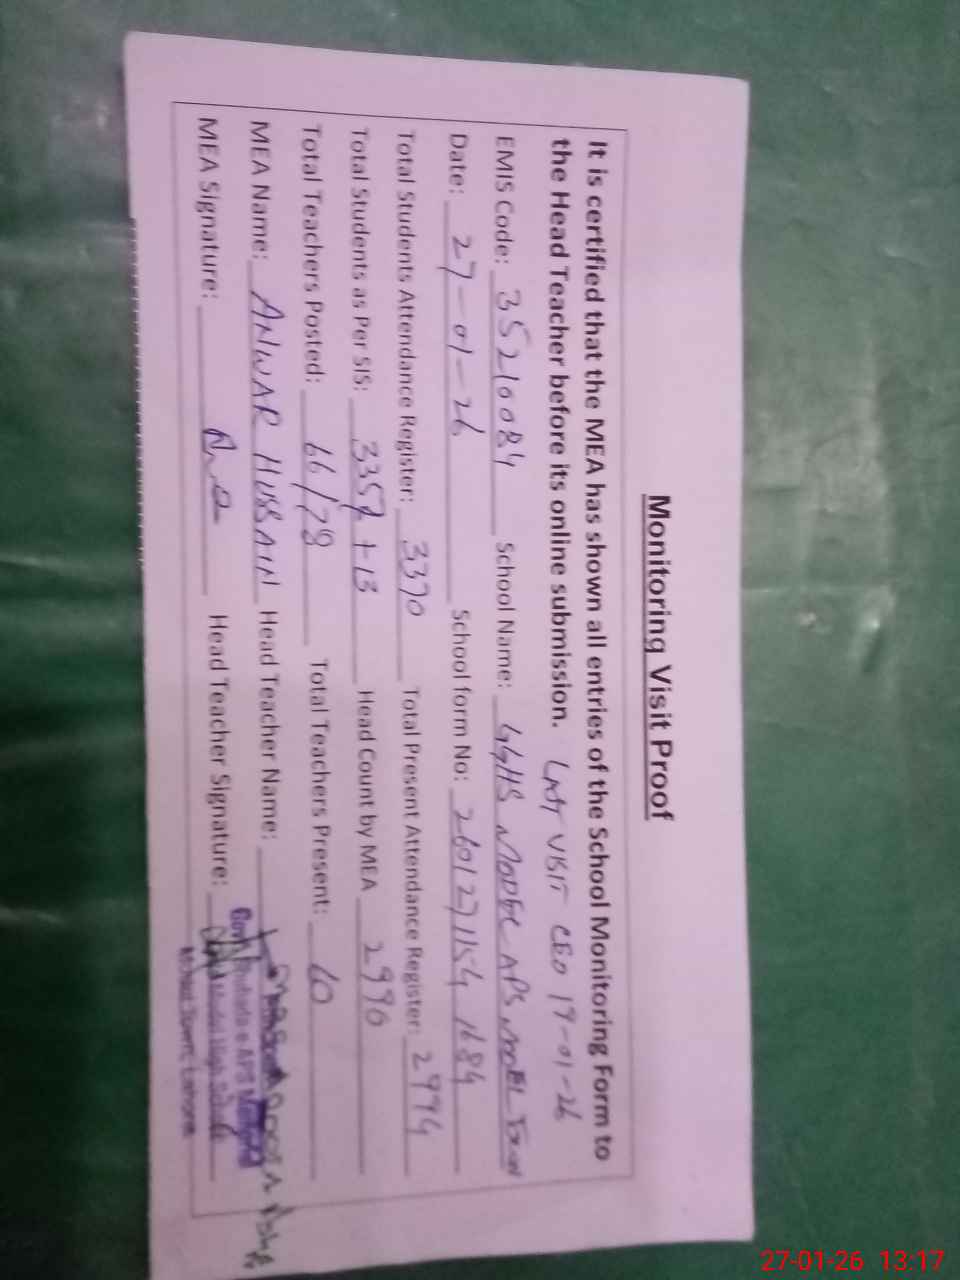 Monitoring Visit Proof
It is certified that the MEA has shown all entries of the School Monitoring Form to
the Head Teacher before its online submission. LAST VISIT CEO 19-01-26
EMIS Code: 35210084 School Name: GGHS MODEL APS MODEL Town
Date: 27-01-26 School form No: 260127 1154 1684
Total Students Attendance Register: 3370 Total Present Attendance Register: 2994
Total Students as Per SIS: 3357 + 13 Head Count by MEA 2990
Total Teachers Posted: 66/78 Total Teachers Present: 60
MEA Name: ANWAR HUSSAIN Head Teacher Name:
MEA Signature: Head Teacher Signature:
Model High School
Model Town, Lahore
27-01-26 13:17